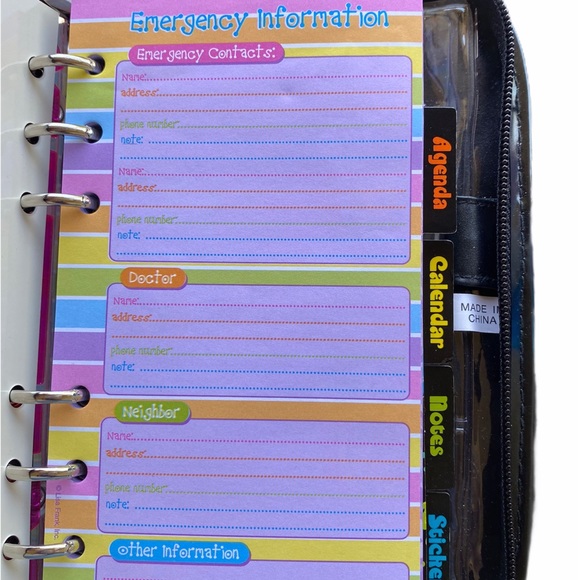 Emergency Information
Emergency Contacts:
Name:
address:
phone number:
note:
Name:
address:
phone number:
note:
Doctor
Name:
address:
phone number:
note:
Neighbor
Name:
address:
phone number:
note:
Other Information
Agenda
Calendar
Notes
Sticke
MADE IN
CHINA